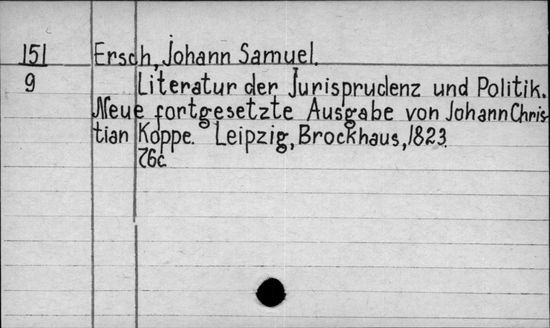 151 Ersch, Johann Samuel.
9 Literatur der Jurisprudenz und Politik.
Neue fortgesetzte Ausgabe von Johann Chris-
tian Koppe. Leipzig, Brockhaus, 1823.
76c.